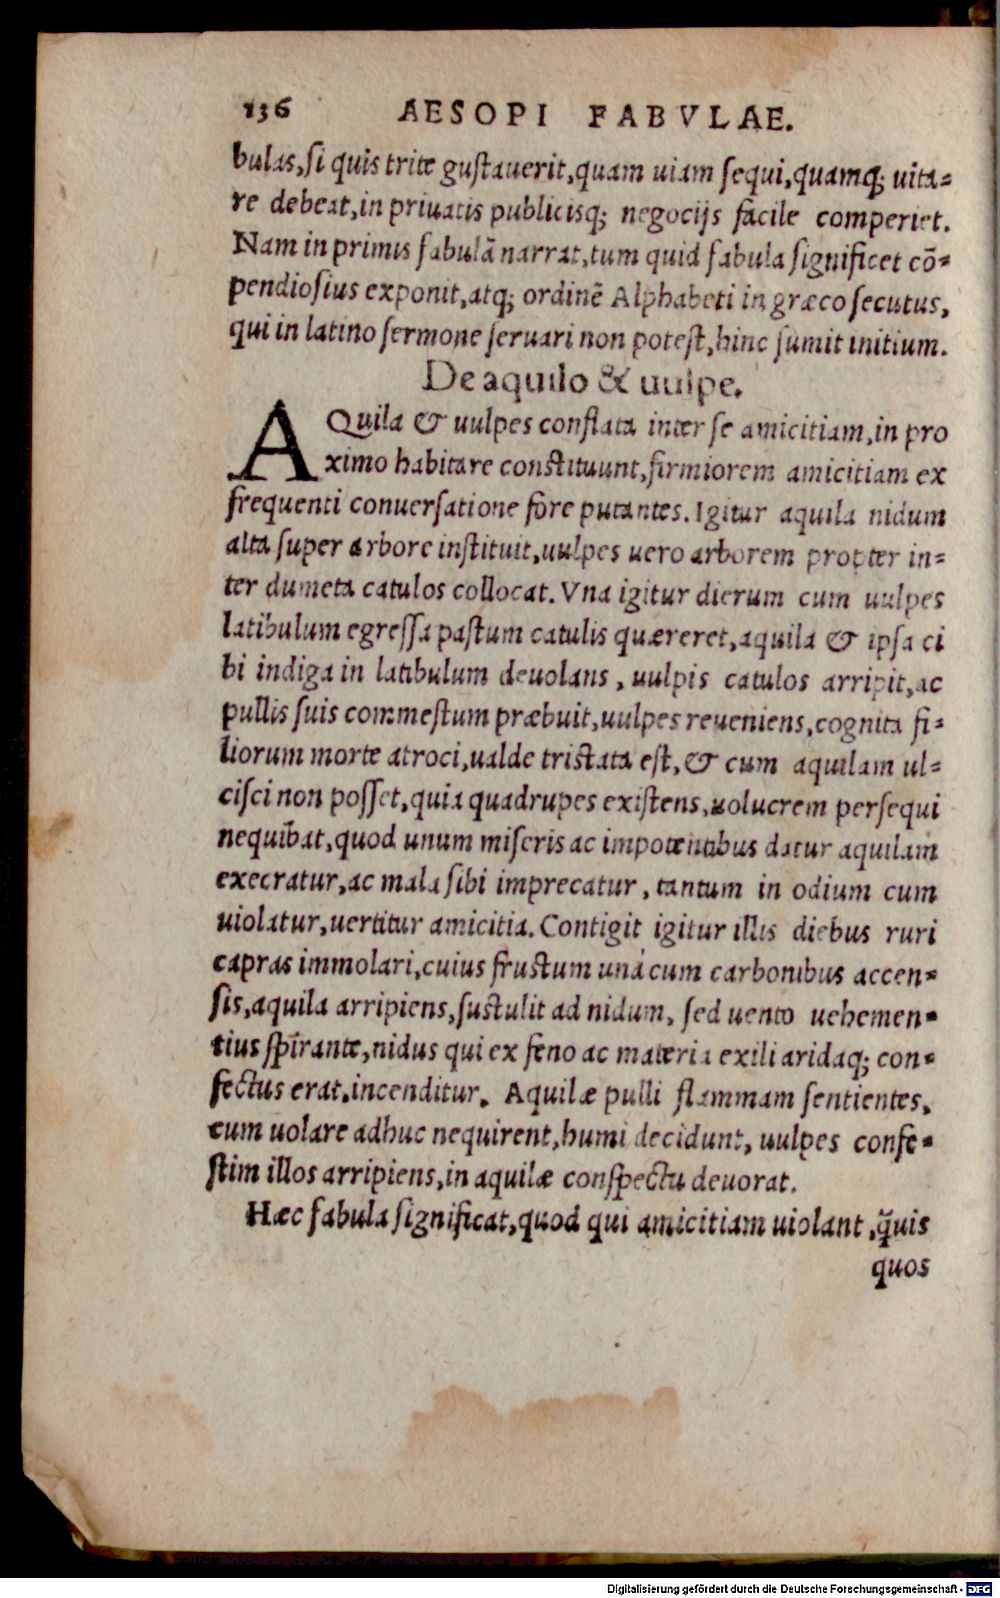 136 AESOPI FABVLAE.
bulas, si quis trite gustauerit, quam uiam sequi, quamq; uita-
re debeat, in priuatis publicisq; negocijs facile comperiet.
Nam in primis fabulā narrat, tum quid fabula significet cō-
pendiosius exponit, atq; ordinē Alphabeti in græco secutus,
qui in latino sermone seruari non potest, hinc sumit initium.
De aquilo & uulpe.
AQuila & uulpes conflata inter se amicitiam, in pro
ximo habitare constituunt, firmiorem amicitiam ex
frequenti conuersatione fore putantes. Igitur aquila nidum
alta super arbore instituit, uulpes uero arborem propter in-
ter dumeta catulos collocat. Vna igitur dierum cum uulpes
latibulum egressa pastum catulis quæreret, aquila & ipsa ci
bi indiga in latibulum deuolans, uulpis catulos arripit, ac
pullis suis commestum præbuit, uulpes reueniens, cognita fi-
liorum morte atroci, ualde tristata est, & cum aquilam ul-
cisci non posset, quia quadrupes existens, uolucrem persequi
nequibat, quod unum miseris ac impotentibus datur aquilam
execratur, ac mala sibi imprecatur, tantum in odium cum
uiolatur, uertitur amicitia. Contigit igitur illis diebus ruri
capras immolari, cuius frustum unà cum carbonibus accen-
sis, aquila arripiens, sustulit ad nidum, sed uento uehemen-
tius spirante, nidus qui ex feno ac materia exili aridaq; con-
fectus erat, incenditur. Aquilæ pulli flammam sentientes,
cum uolare adhuc nequirent, humi decidunt, uulpes confe-
stim illos arripiens, in aquilæ conspectu deuorat.
Hæc fabula significat, quod qui amicitiam uiolant, q̃uis
quos
Digitalisierung gefördert durch die Deutsche Forschungsgemeinschaft - DFG